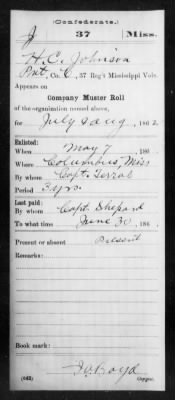 (Confederate.)
J 37 Miss.
H. C. Johnson
Pvt, Co. C, 37 Reg't Mississippi Vols.
Appears on
Company Muster Roll
of the organization named above,
for July & Aug, 1862.
Enlisted:
When May 7, 186
Where Columbus, Miss
By whom Capt. Terral
Period 3 yrs.
Last paid:
By whom Capt. Shepard
To what time June 30, 186
Present or absent Present
Remarks:
Book mark:
Boyd
(642) Copyist.